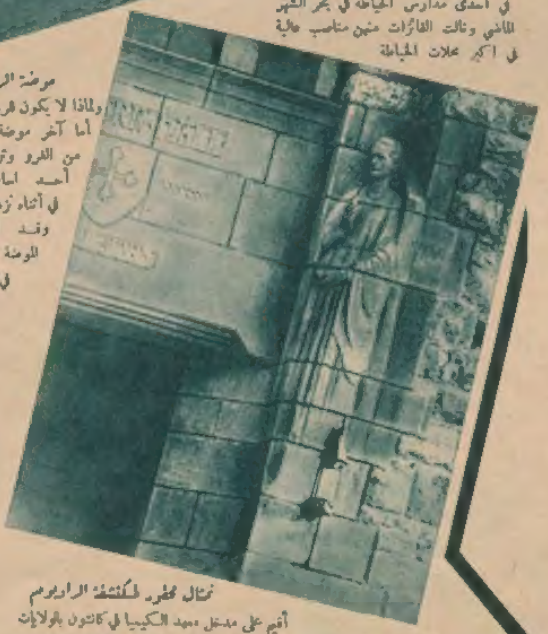 في احدى مدارس الخياطة في بحر الشهر
الماضي ونالت الفائزات منهن مناصب عالية
في اكبر محلات الخياطة
موضة
ولماذا لا يكون
أما آخر موضة
من الفرو
أحد
في أثناء
وقد
الموضة
في
تمثال محفور لمكتشفة الراديوم
أقيم على مدخل معهد الكيمياء في كانتون بالولايات